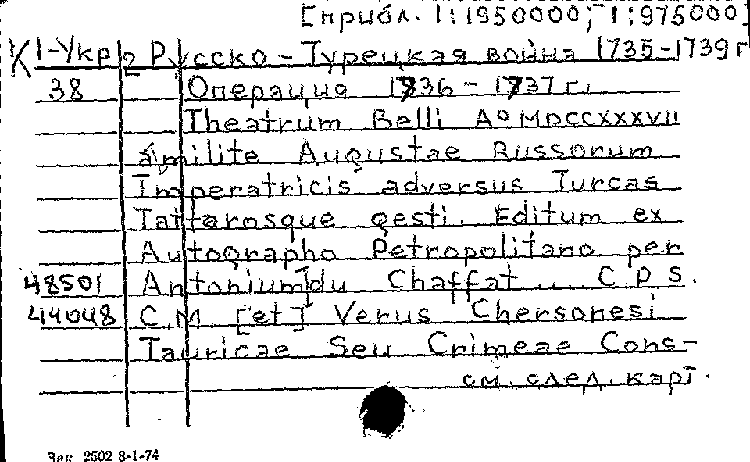 [прибл. 1:1950000; 1:975000]
К 1-Укр 2 Русско-Турецкая война 1735-1739 г
38 Операция 1736-1737 г.
Theatrum Belli Aº MDCCXXXVII
a milite Augustae Russorum
Imperatricis adversus Turcas
Tattarosque gesti. Editum ex
Autographo Petropolitano per
48501 Antonium du Chaffat .. C.P.S.
44048 C.M [et] Verus Chersonesi
Tauricae Seu Crimeae Cons-
см. след. карт.
Зак. 2502 8-1-74